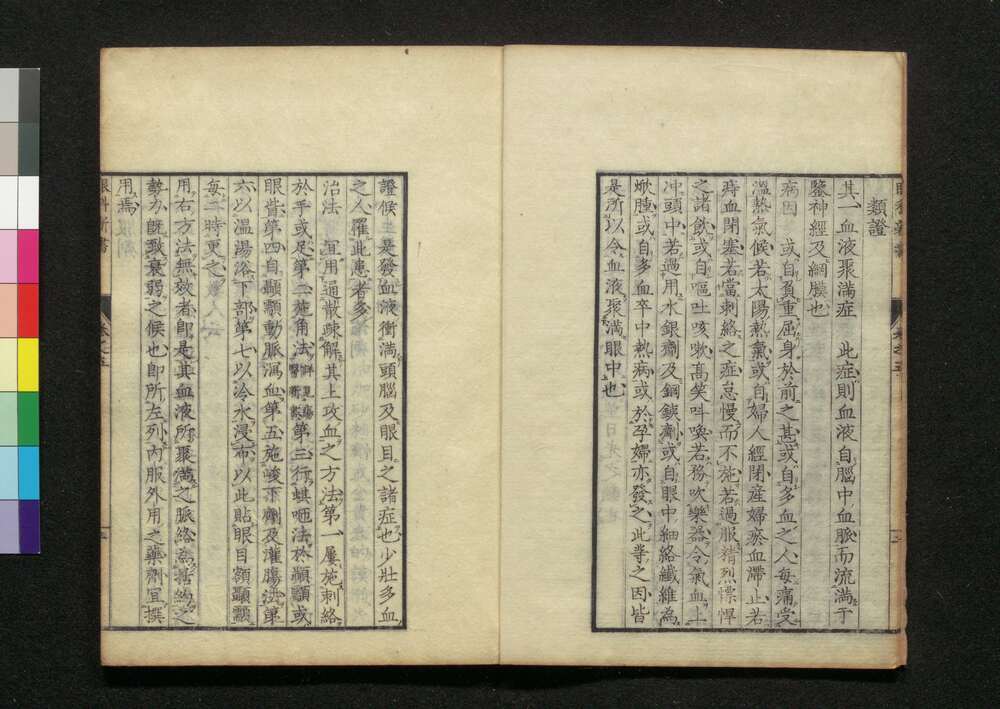 類證
其一 血液聚滿症 此症則血液自腦中血脈而流滿于
鑒神經及網膜也
病因 或自負重屈身於前之甚或自多血之人每痛受
溫熱氣候若太陽熱氣或自婦人經閉産婦瘀血滯止若
痔血閉塞若當刺絡之症怠慢而不施若過服猜烈慓悍
之諸飲或自嘔吐咳嗽高笑叫喚若務吹樂器令氣血上
冲頭中若過用水銀劑及鋼鐵劑或自眼中細絡纖維為
焮腫或自多血卒中熱病或於孕婦亦發之此等之因皆
是所以令血液聚滿眼中也
證候 是發血液衝滿頭腦及眼目之諸症也少壯多血
之人罹此患者多
治法 宜用通散疎解其上攻血之方法第一屢施刺絡
於手或足第二施角法第三行蜞咂法於顳顬或
眼眥第四自顳顬動脈瀉血第五施峻下劑及灌腸法第
六以溫湯浴下部第七以冷水浸布以此貼眼目額顳顬
每二時更之
用右方法無效者即是其血液所聚滿之脈絡為
勢力既致衰弱之候也即所左列內服外用之藥劑宜撰
用焉
眼科新書